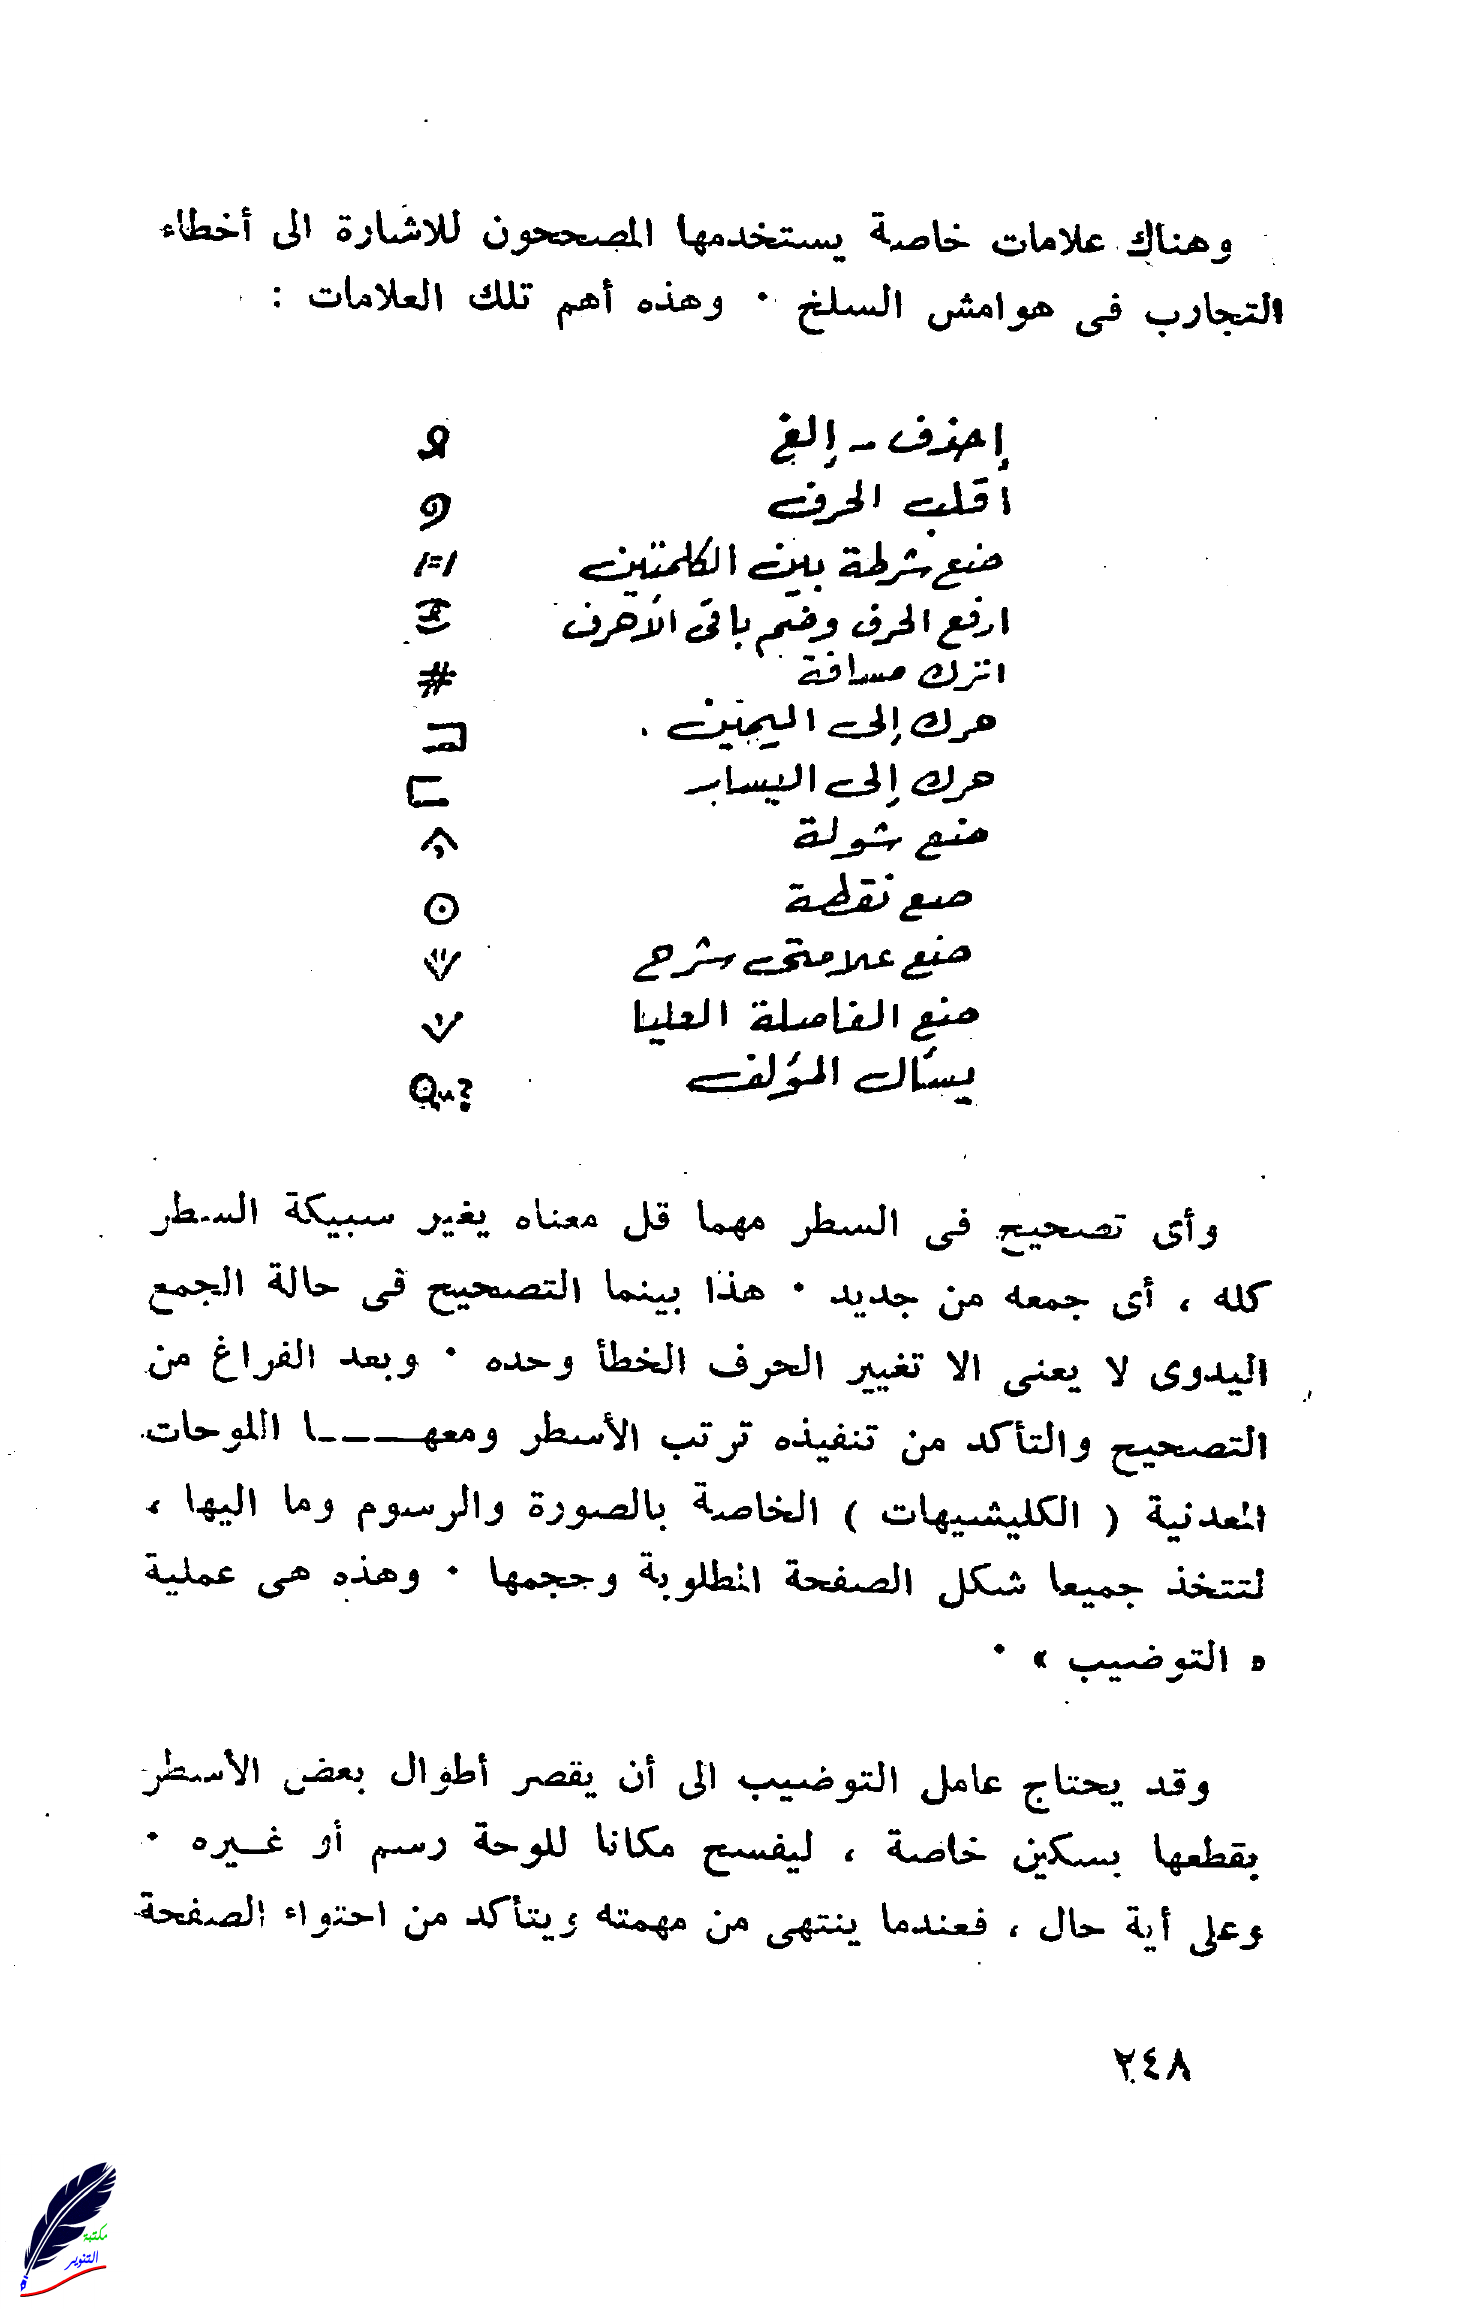 وهناك علامات خاصة يستخدمها المصححون للاشارة الى أخطاء
التجارب فى هوامش السلخ . وهذه أهم تلك العلامات :
إحذف - إلغ
أقلب الحرف
ضع شرطة بين الكلمتين /=/
ارفع الحرف وضم باقى الأحرف
اترك مسافة #
حرك إلى اليمين .
حرك إلى اليسار
ضع شولة
ضع نقطة ⊙
ضع علامتى شرح
ضع الفاصلة العليا
يسأل المؤلف Qu?
وأى تصحيح فى السطر مهما قل معناه يغير سبيكة السطر
كله ، أى جمعه من جديد . هذا بينما التصحيح فى حالة الجمع
اليدوى لا يعنى الا تغيير الحرف الخطأ وحده . وبعد الفراغ من
التصحيح والتأكد من تنفيذه ترتب الأسطر ومعهـــــا اللوحات
المعدنية ( الكليشيهات ) الخاصة بالصورة والرسوم وما اليها ،
لتتخذ جميعا شكل الصفحة المطلوبة وحجمها . وهذه هى عملية
« التوضيب » .
وقد يحتاج عامل التوضيب الى أن يقصر أطوال بعض الأسطر
بقطعها بسكين خاصة ، ليفسح مكانا للوحة رسم أو غـيره .
وعلى أية حال ، فعندما ينتهى من مهمته ويتأكد من احتواء الصفحة
٢٤٨
مكتبة
التنوير